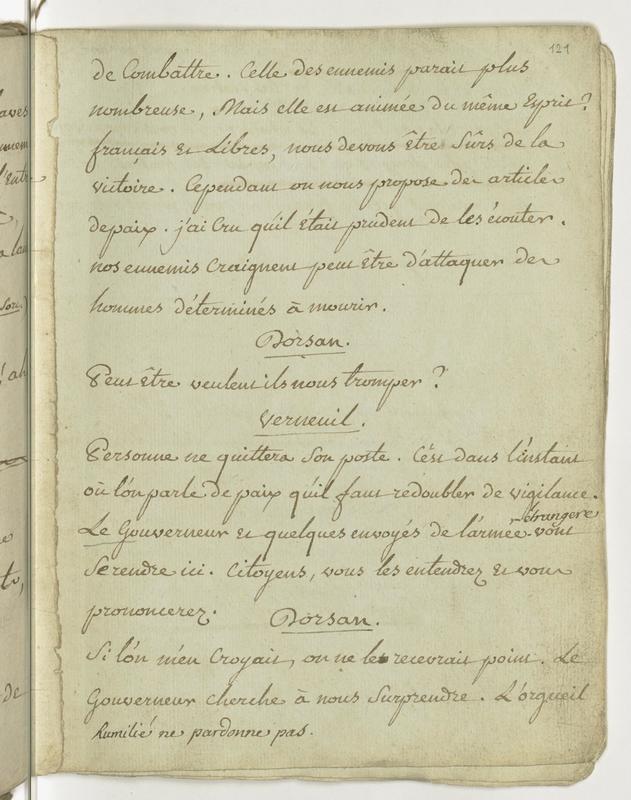 121
de Combattre. Celle des ennemis parait plus
nombreuse, Mais elle est animée du même Esprit?
français Et Libres, nous devons Être Sûrs de la
victoire. Cependant on nous propose des articles
de paix. j'ai Cru qu'il Était prudent de les écouter.
nos ennemis Craignent peut Être d'attaquer des
hommes déterminés à mourir.
Dorsan.
Peut Être veulent ils nous tromper?
Verneuil.
Personne ne quittera Son poste. C'ést dans l'instant
où l'on parle de paix qu'il faut redoubler de vigilance.
étrangere
Le Gouverneur Et quelques envoyés de l'armée vont
Se rendre ici. Citoyens, vous les entendrez Et vous
prononcerez.
Dorsan.
Si l'on m'en Croyait, on ne les recevrait point. Le
Gouverneur Cherche à nous Surprendre. L'orgueil
humilié ne pardonne pas.